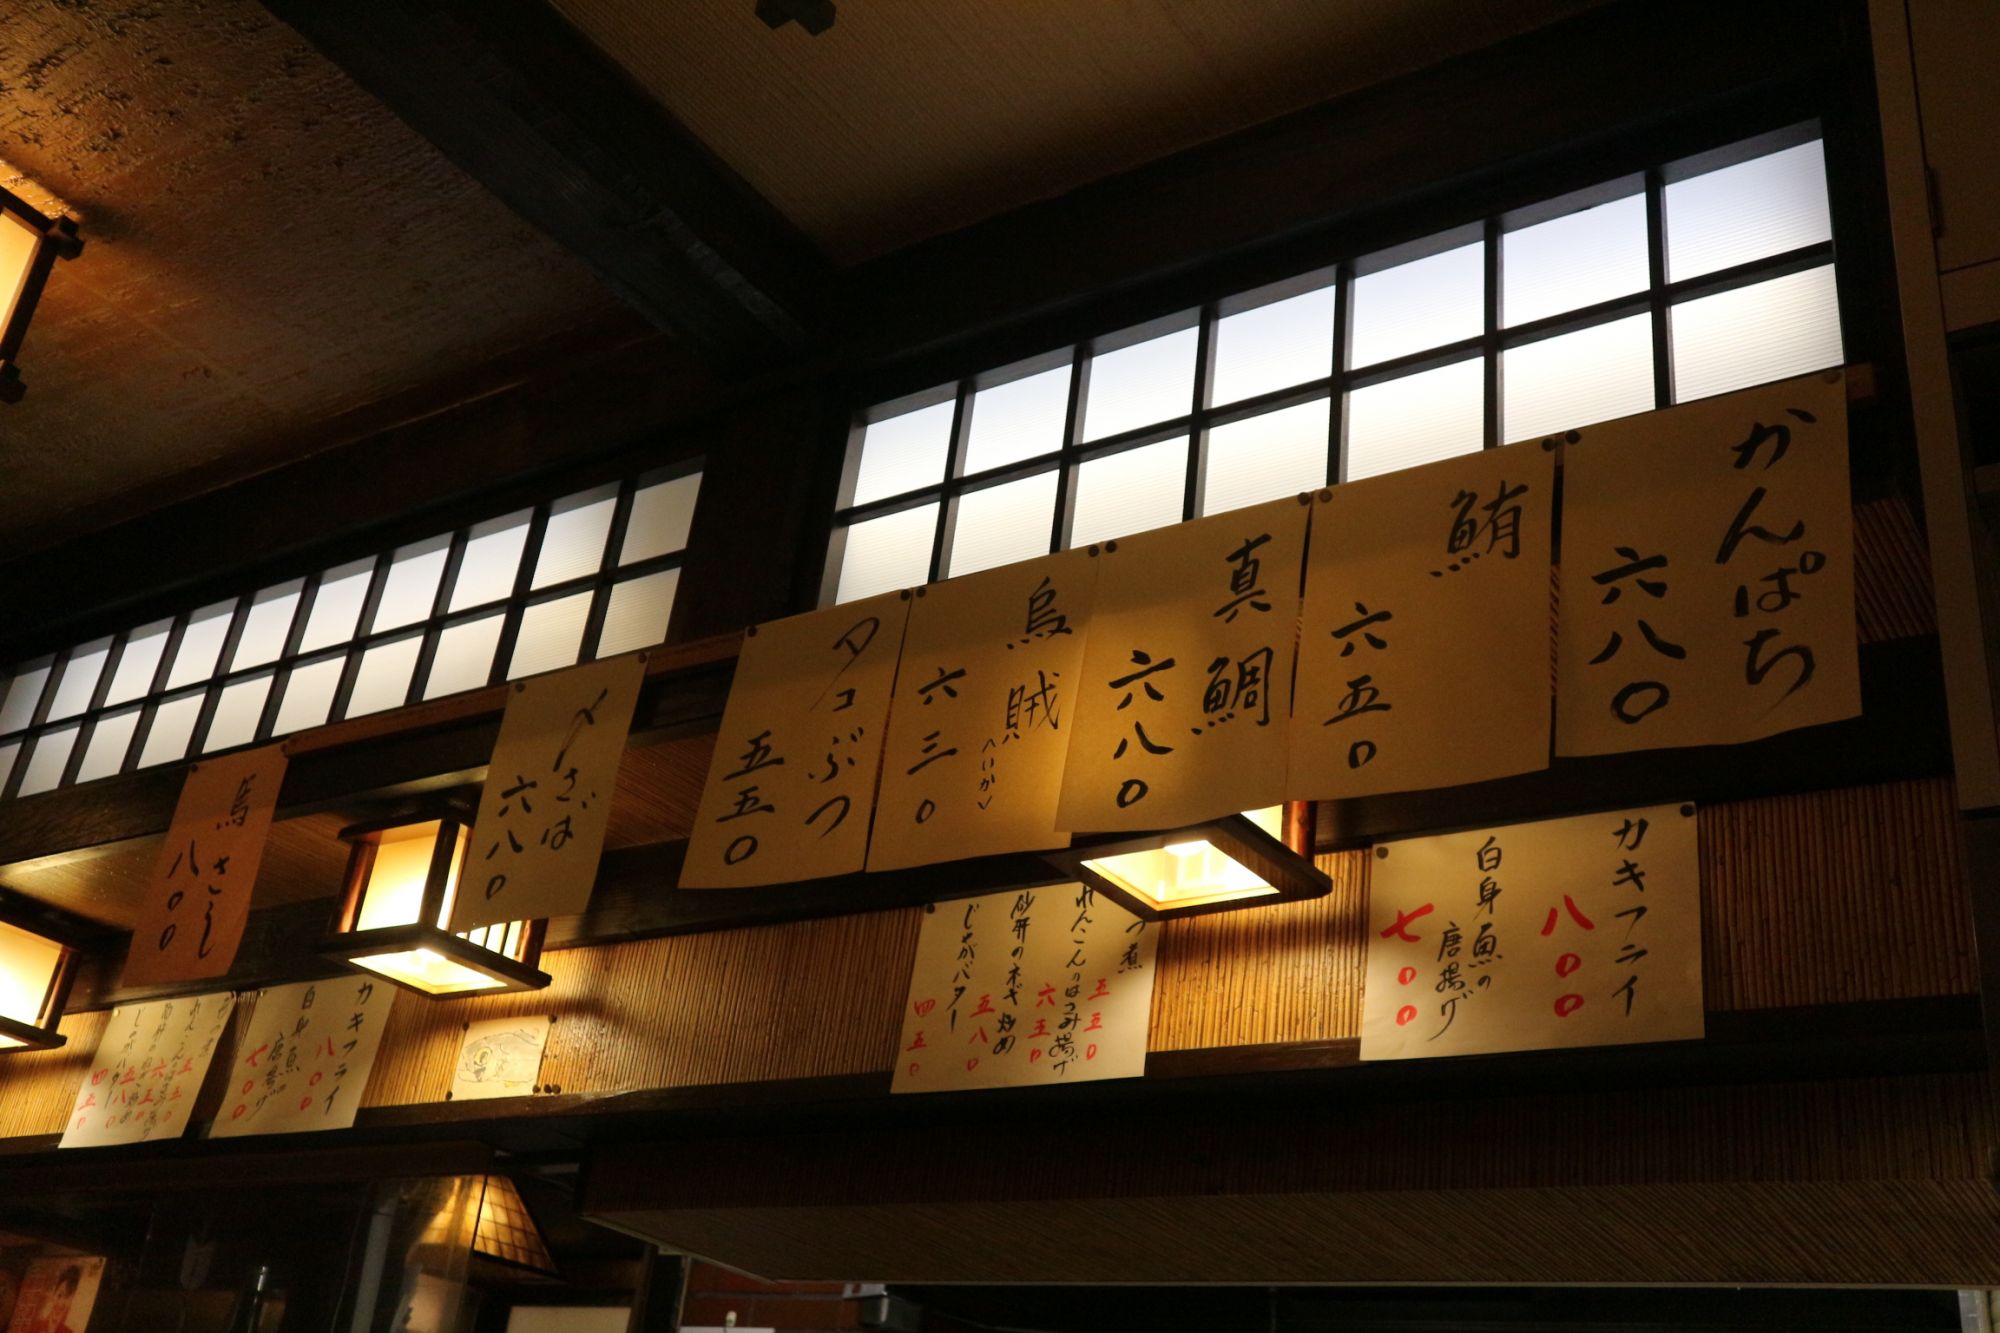 かんぱち
六八〇
鮪
六五〇
真鯛
六八〇
烏賊
(へいかい)
六三〇
タコぶつ
五五〇
〆さば
六八〇
鳥さし
八〇〇
カキフライ
八〇〇
白身魚の
唐揚げ
七〇〇
つ煮
五五〇
れんこんのはさみ揚げ
六五〇
砂肝のネギ炒め
五八〇
じゃがバター
四五〇
カキフライ
八〇〇
白身魚の
唐揚げ
七〇〇
つ煮
五五〇
れんこんのはさみ揚げ
六五〇
砂肝のネギ炒め
五八〇
じゃがバター
四五〇